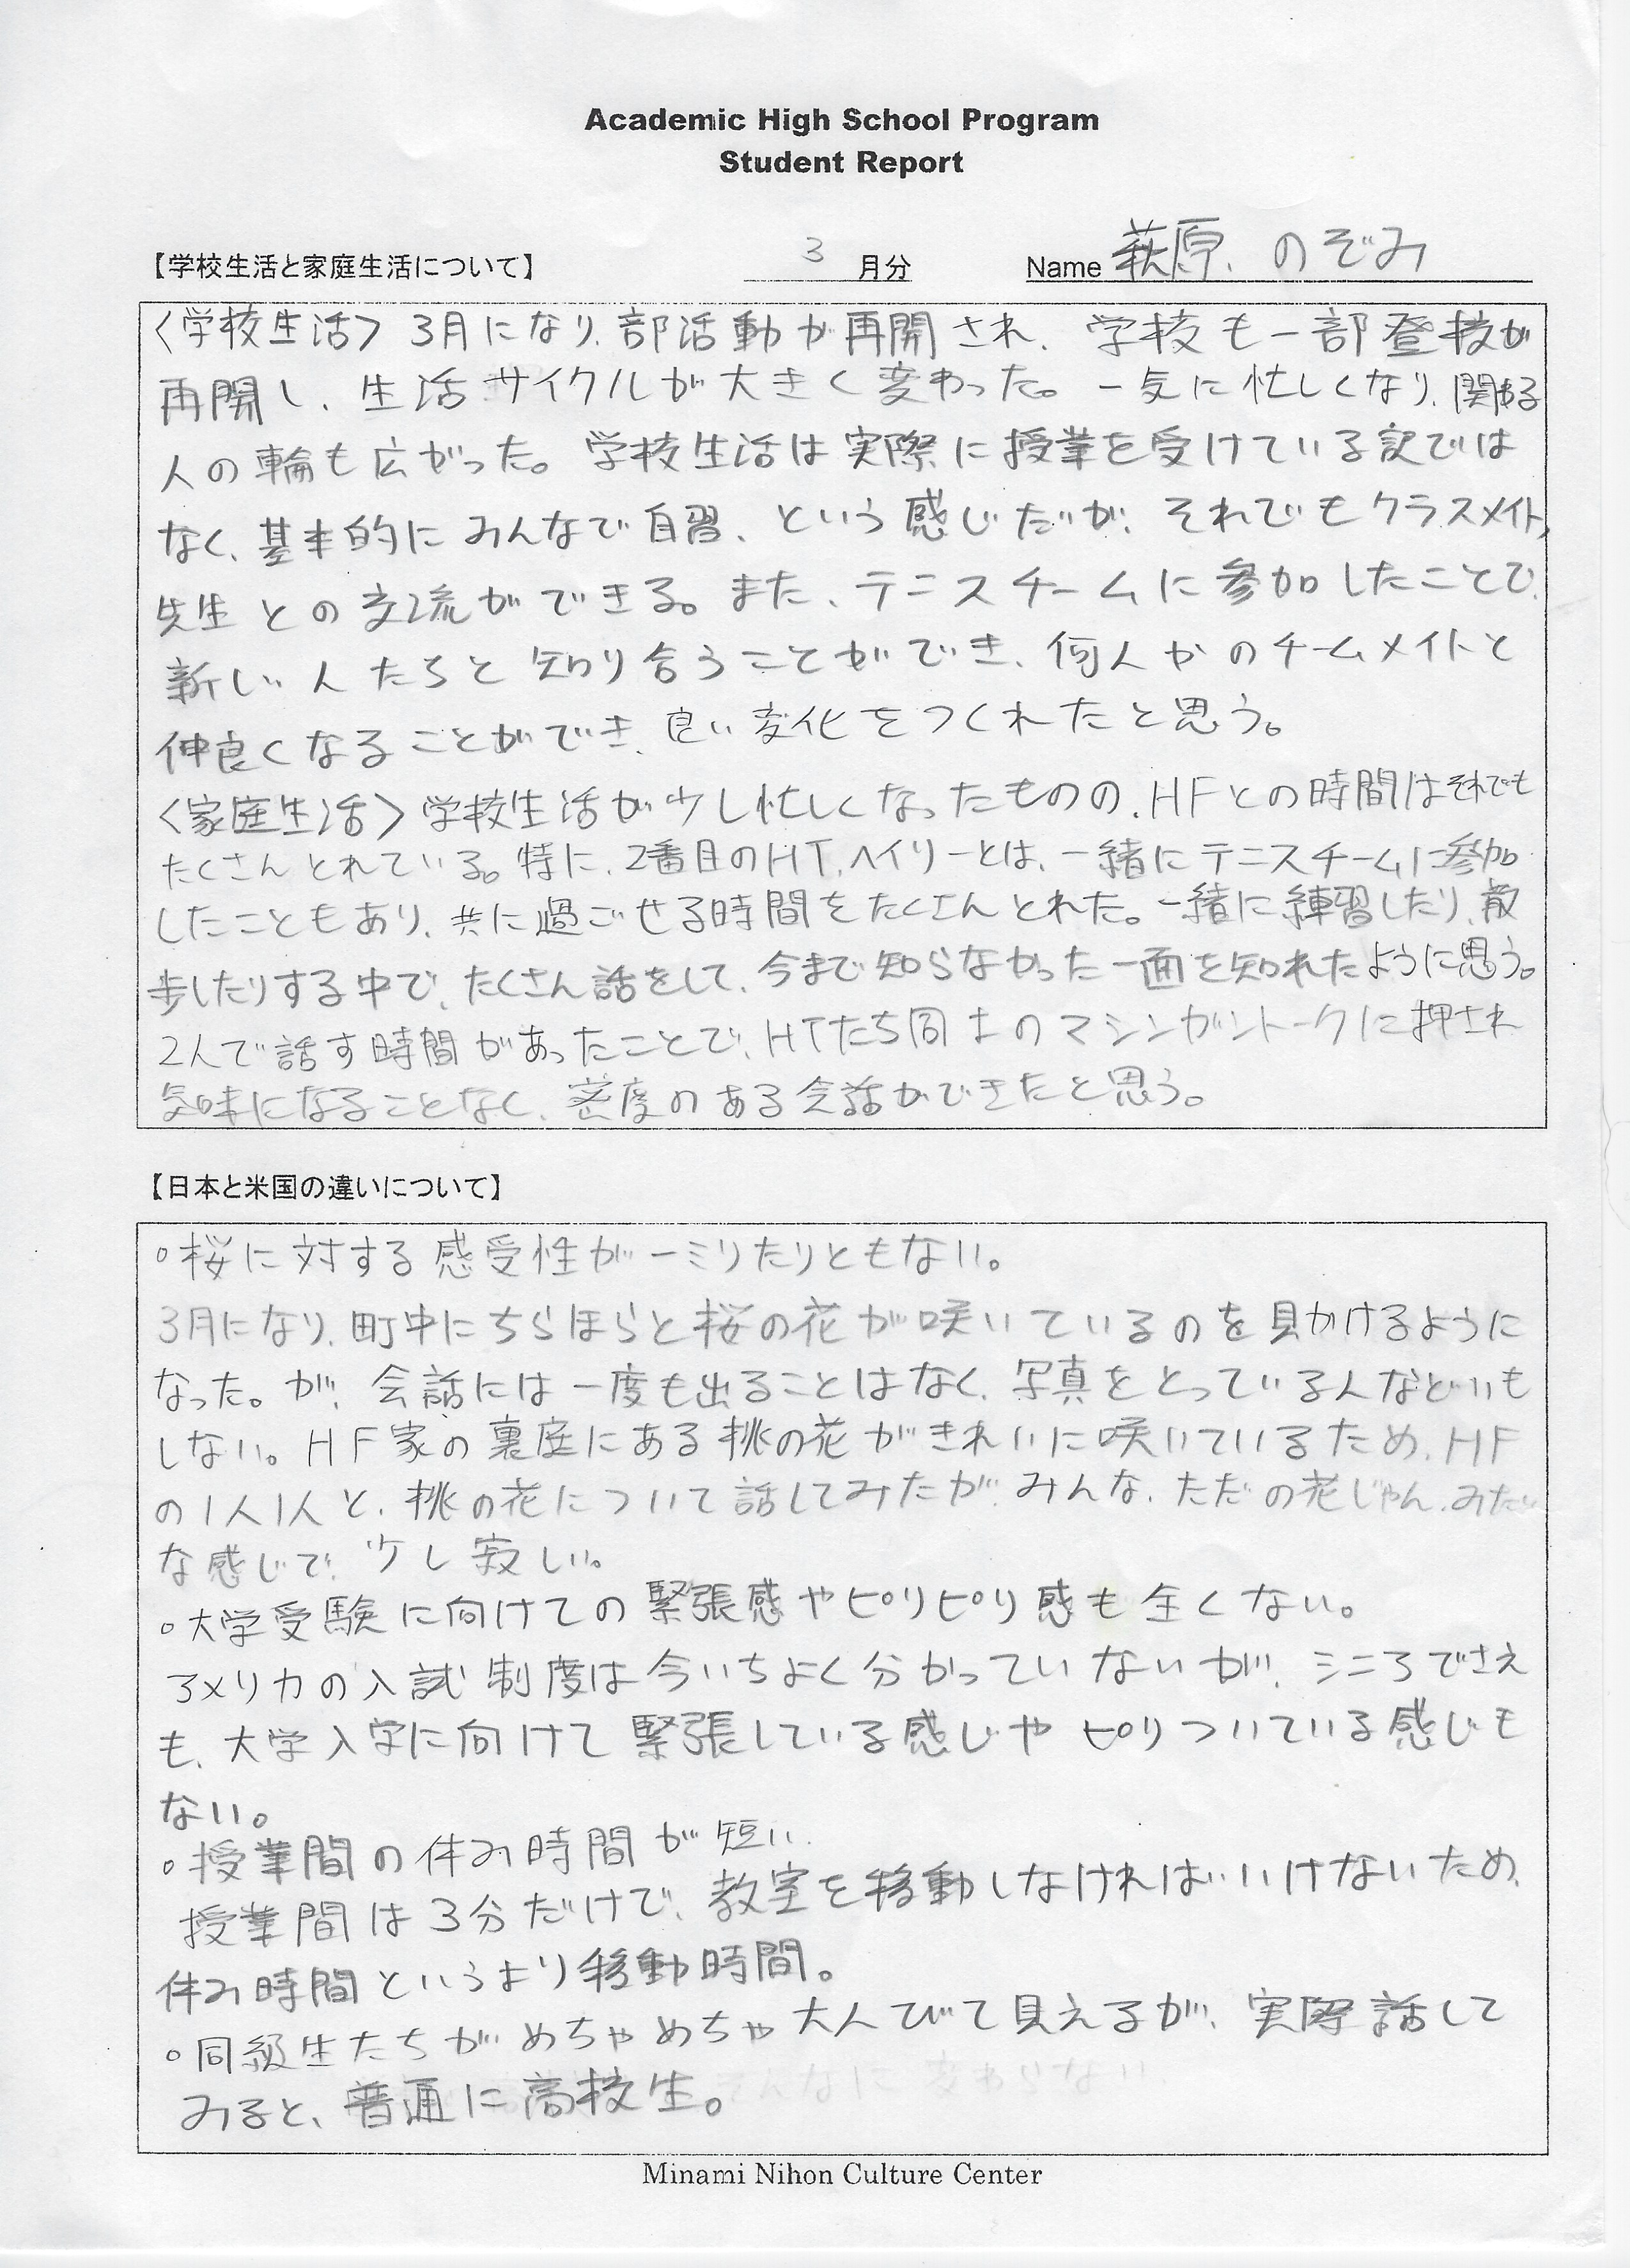 Academic High School Program
Student Report
【学校生活と家庭生活について】 3 月分 Name 萩原 のぞみ
〈学校生活〉3月になり、部活動が再開され、学校も一部登校が
再開し、生活サイクルが大きく変わった。一気に忙しくなり、関わる
人の輪も広がった。学校生活は実際に授業を受けている訳では
なく、基本的にみんなで自習、という感じだが、それでもクラスメイト、
先生との交流ができる。また、テニスチームに参加したことで、
新しい人たちと知り合うことができ、何人かのチームメイトと
仲良くなることができ、良い変化をつくれたと思う。
〈家庭生活〉学校生活が少し忙しくなったものの、HFとの時間はそれでも
たくさんとれている。特に、2番目のHT、ヘイリーとは、一緒にテニスチームに参加
したこともあり、共に過ごせる時間をたくさんとれた。一緒に練習したり、散
歩したりする中で、たくさん話をして、今まで知らなかった一面を知れたように思う。
2人で話す時間があったことで、HTたち同士のマシンガントークに押され
気味になることなく、密度のある会話ができたと思う。
【日本と米国の違いについて】
○桜に対する感受性が一ミリたりともない。
3月になり、町中にちらほらと桜の花が咲いているのを見かけるように
なった。が、会話には一度も出ることはなく、写真をとっている人などいも
しない。HF家の裏庭にある桃の花がきれいに咲いているため、HF
の1人1人と、桃の花について話してみたが、みんな、ただの花じゃん、みたい
な感じで、少し寂しい。
○大学受験に向けての緊張感やピリピリ感も全くない。
アメリカの入試制度は今いちよく分かっていないが、シニアでさえ
も、大学入学に向けて緊張している感じやピリついている感じも
ない。
○授業間の休み時間が短い
授業間は3分だけで、教室を移動しなければいけないため、
休み時間というより移動時間。
○同級生たちがめちゃめちゃ大人びて見えるが、実際話して
みると、普通に高校生。
Minami Nihon Culture Center